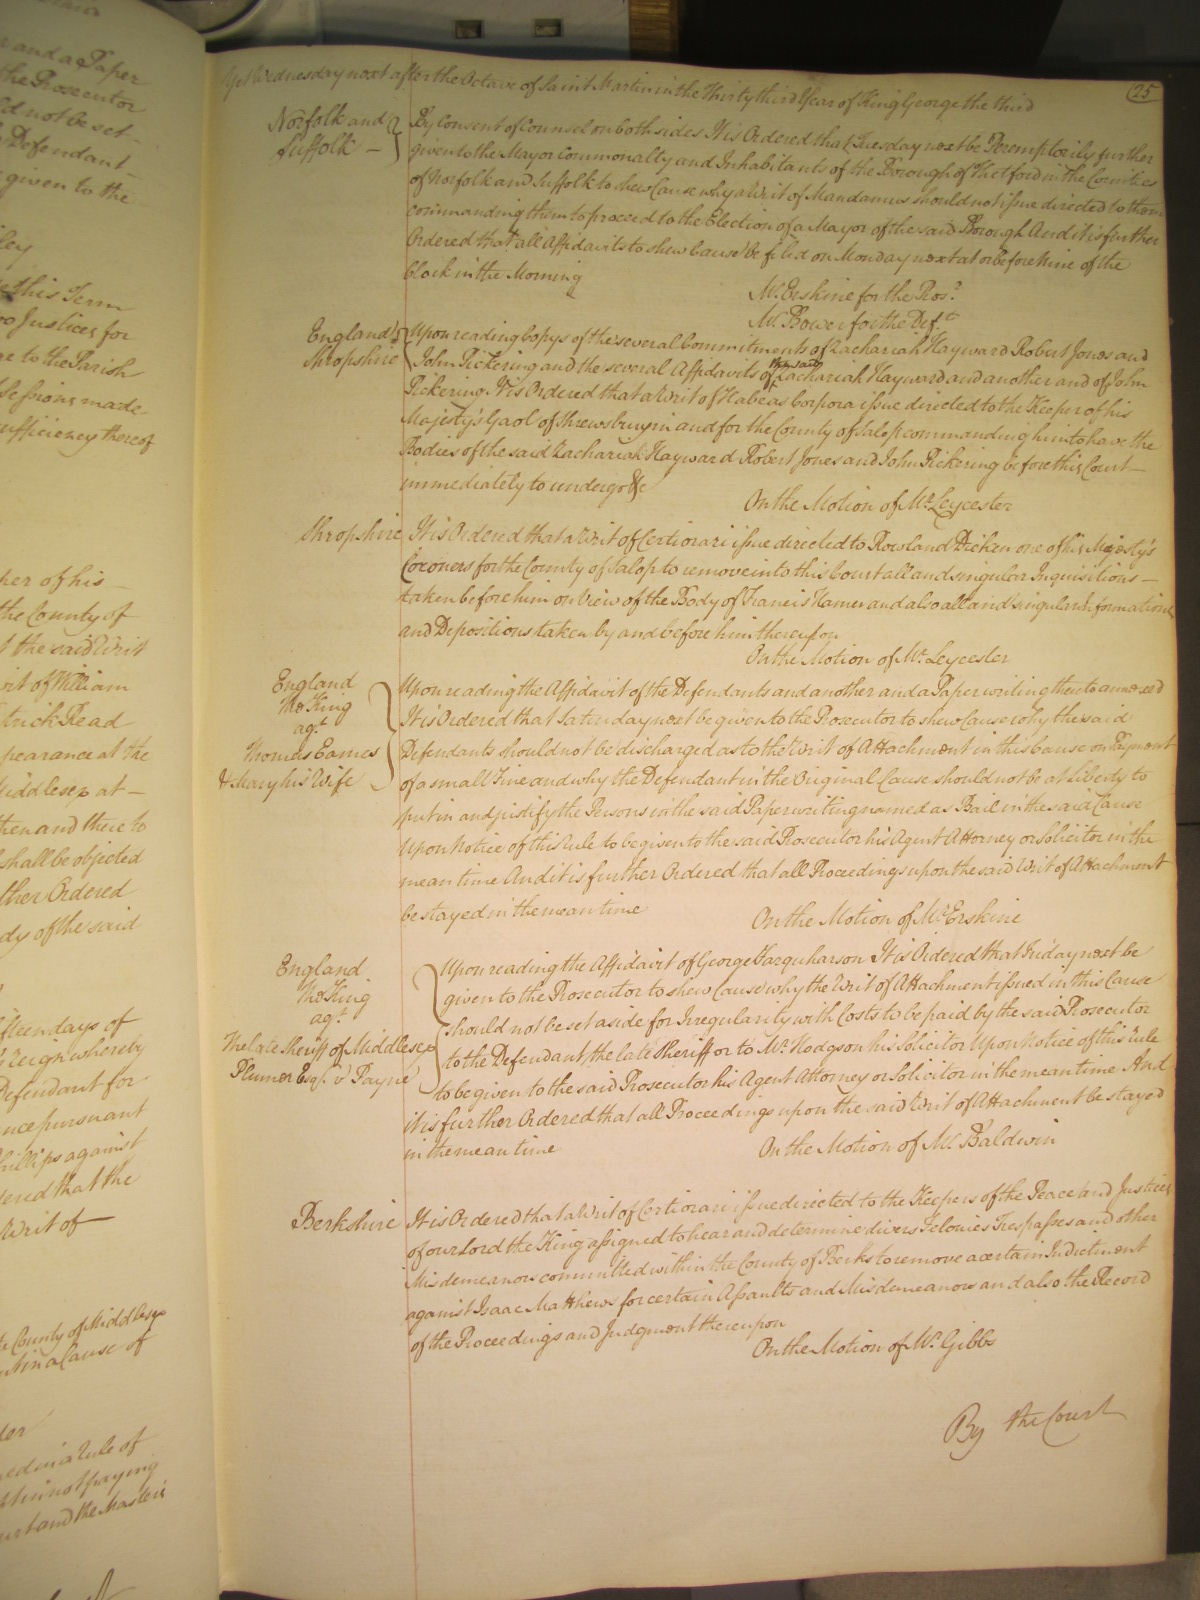 25
Yet Wednesday next after the Octave of Saint Martin in the Thirty third Year of King George the third
Norfolk and
Suffolk —
By Consent of Counsel on both sides It is Ordered that Tuesday next be Peremptorily further
given to the Mayor Commonalty and Inhabitants of the Borough of Thetford in the Counties
of Norfolk and Suffolk to shew Cause why a Writ of Mandamus should not issue directed to them
commanding them to proceed to the Election of a Mayor of the said Borough And it is further
Ordered that all Affidavits to shew Cause be filed on Monday next at or before Nine of the
Clock in the Morning
Mr. Erskine for the Pros.r
Mr. Bower for the Def.t
England &
Shropshire
Upon reading Copys of the several Commitments of Zachariah Hayward Robert Jones and
John Pickering and the several Affidavits of the said Zachariah Hayward and another and of John
Pickering It is Ordered that a Writ of Habeas Corpora issue directed to the Keeper of his
Majesty's Gaol of Shrewsbury in and for the County of Salop commanding him to have the
Bodies of the said Zachariah Hayward Robert Jones and John Pickering before this Court —
immediately to undergo &c
On the Motion of Mr. Leycester
Shropshire
It is Ordered that a Writ of Certiorari issue directed to Rowland Dicken one of his Majesty's
Coroners for the County of Salop to remove into this Court all and singular Inquisitions —
taken before him on View of the Body of Francis Hamer and also all and singular Informations
and Depositions taken by and before him thereupon
On the Motion of Mr. Leycester
England
The King
ag.t
Thomas Eames
& Mary his Wife
Upon reading the Affidavit of the Defendants and another and a Paper writing thereto annexed
It is Ordered that Saturday next be given to the Prosecutor to shew Cause why the said
Defendants should not be discharged as to the Writ of Attachment in this Cause on Payment
of a small Fine and why the Defendant in the Original Cause should not be at Liberty to
put in and justify the Persons in the said Paper writing named as Bail in the said Cause
Upon Notice of this Rule to be given to the said Prosecutor his Agent Attorney or Solicitor in the
mean time And it is further Ordered that all Proceedings upon the said Writ of Attachment
be stayed in the mean time
On the Motion of Mr. Erskine
England
The King
ag.t
The late Sheriff of Middlesex
Plumer Esq.r v Payne
Upon reading the Affidavit of George Farquharson It is Ordered that Friday next be
given to the Prosecutor to shew Cause why the Writ of Attachment issued in this Cause
should not be set aside for Irregularity with Costs to be paid by the said Prosecutor
to the Defendant the late Sheriff or to Mr. Hodgson his Solicitor Upon Notice of this Rule
to be given to the said Prosecutor his Agent Attorney or Solicitor in the mean time And
it is further Ordered that all Proceedings upon the said Writ of Attachment be stayed
in the mean time
On the Motion of Mr. Baldwin
Berkshire
It is Ordered that a Writ of Certiorari issue directed to the Keepers of the Peace and Justices
of our Lord the King assigned to hear and determine divers Felonies Trespasses and other
Misdemeanors committed within the County of Berks to remove a certain Indictment
against Isaac Matthews for certain Assaults and Misdemeanors and also the Record
of the Proceedings and Judgment thereupon
On the Motion of Mr. Gibbs
By the Court